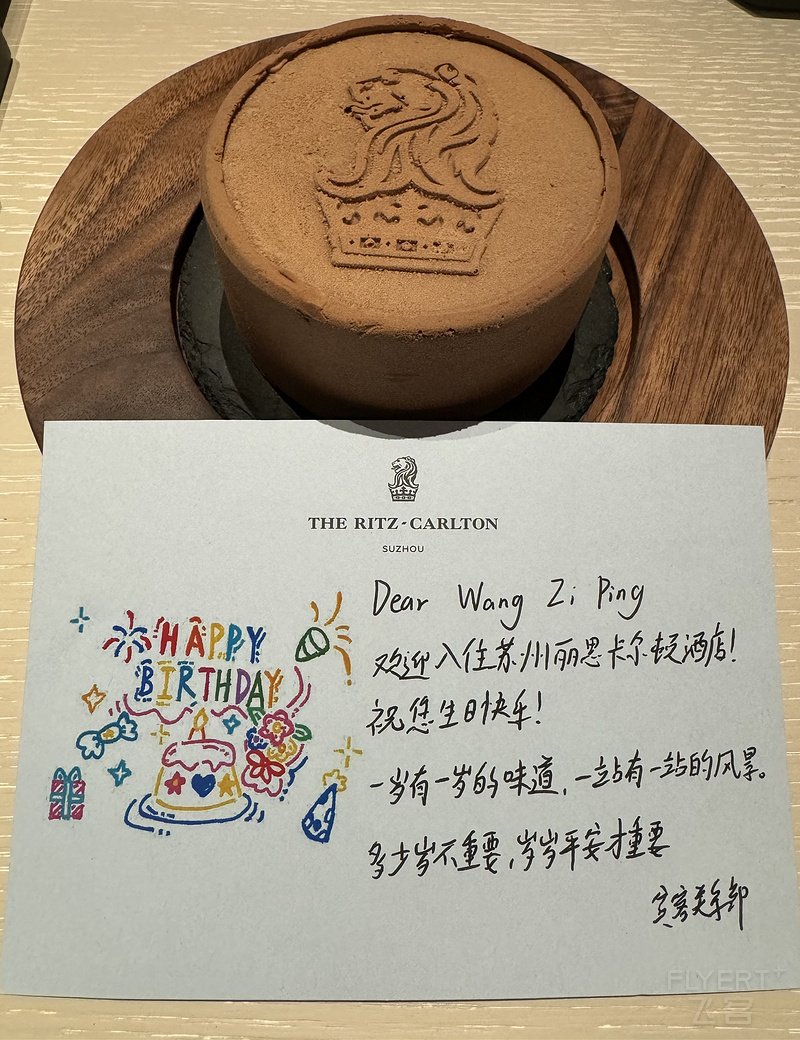 THE RITZ-CARLTON
SUZHOU
Dear Wang Zi Ping
欢迎入住苏州丽思卡尔顿酒店!
祝您生日快乐!
一岁有一岁的味道,一站有一站的风景。
多少岁不重要,岁岁平安才重要
宾客关系部
HAPPY
BIRTHDAY
FLYERT
飞客